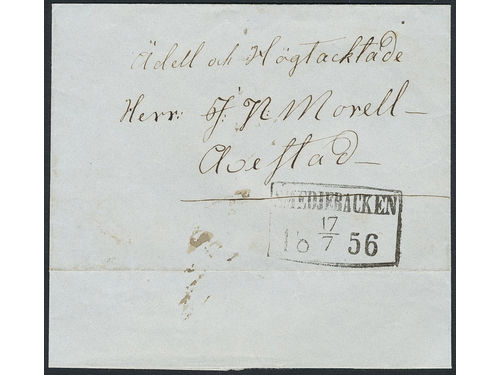 Ädell och Högtacktade
Herr: J. N. Morell
Avestad
SMEDJEBACKEN
17
7 56